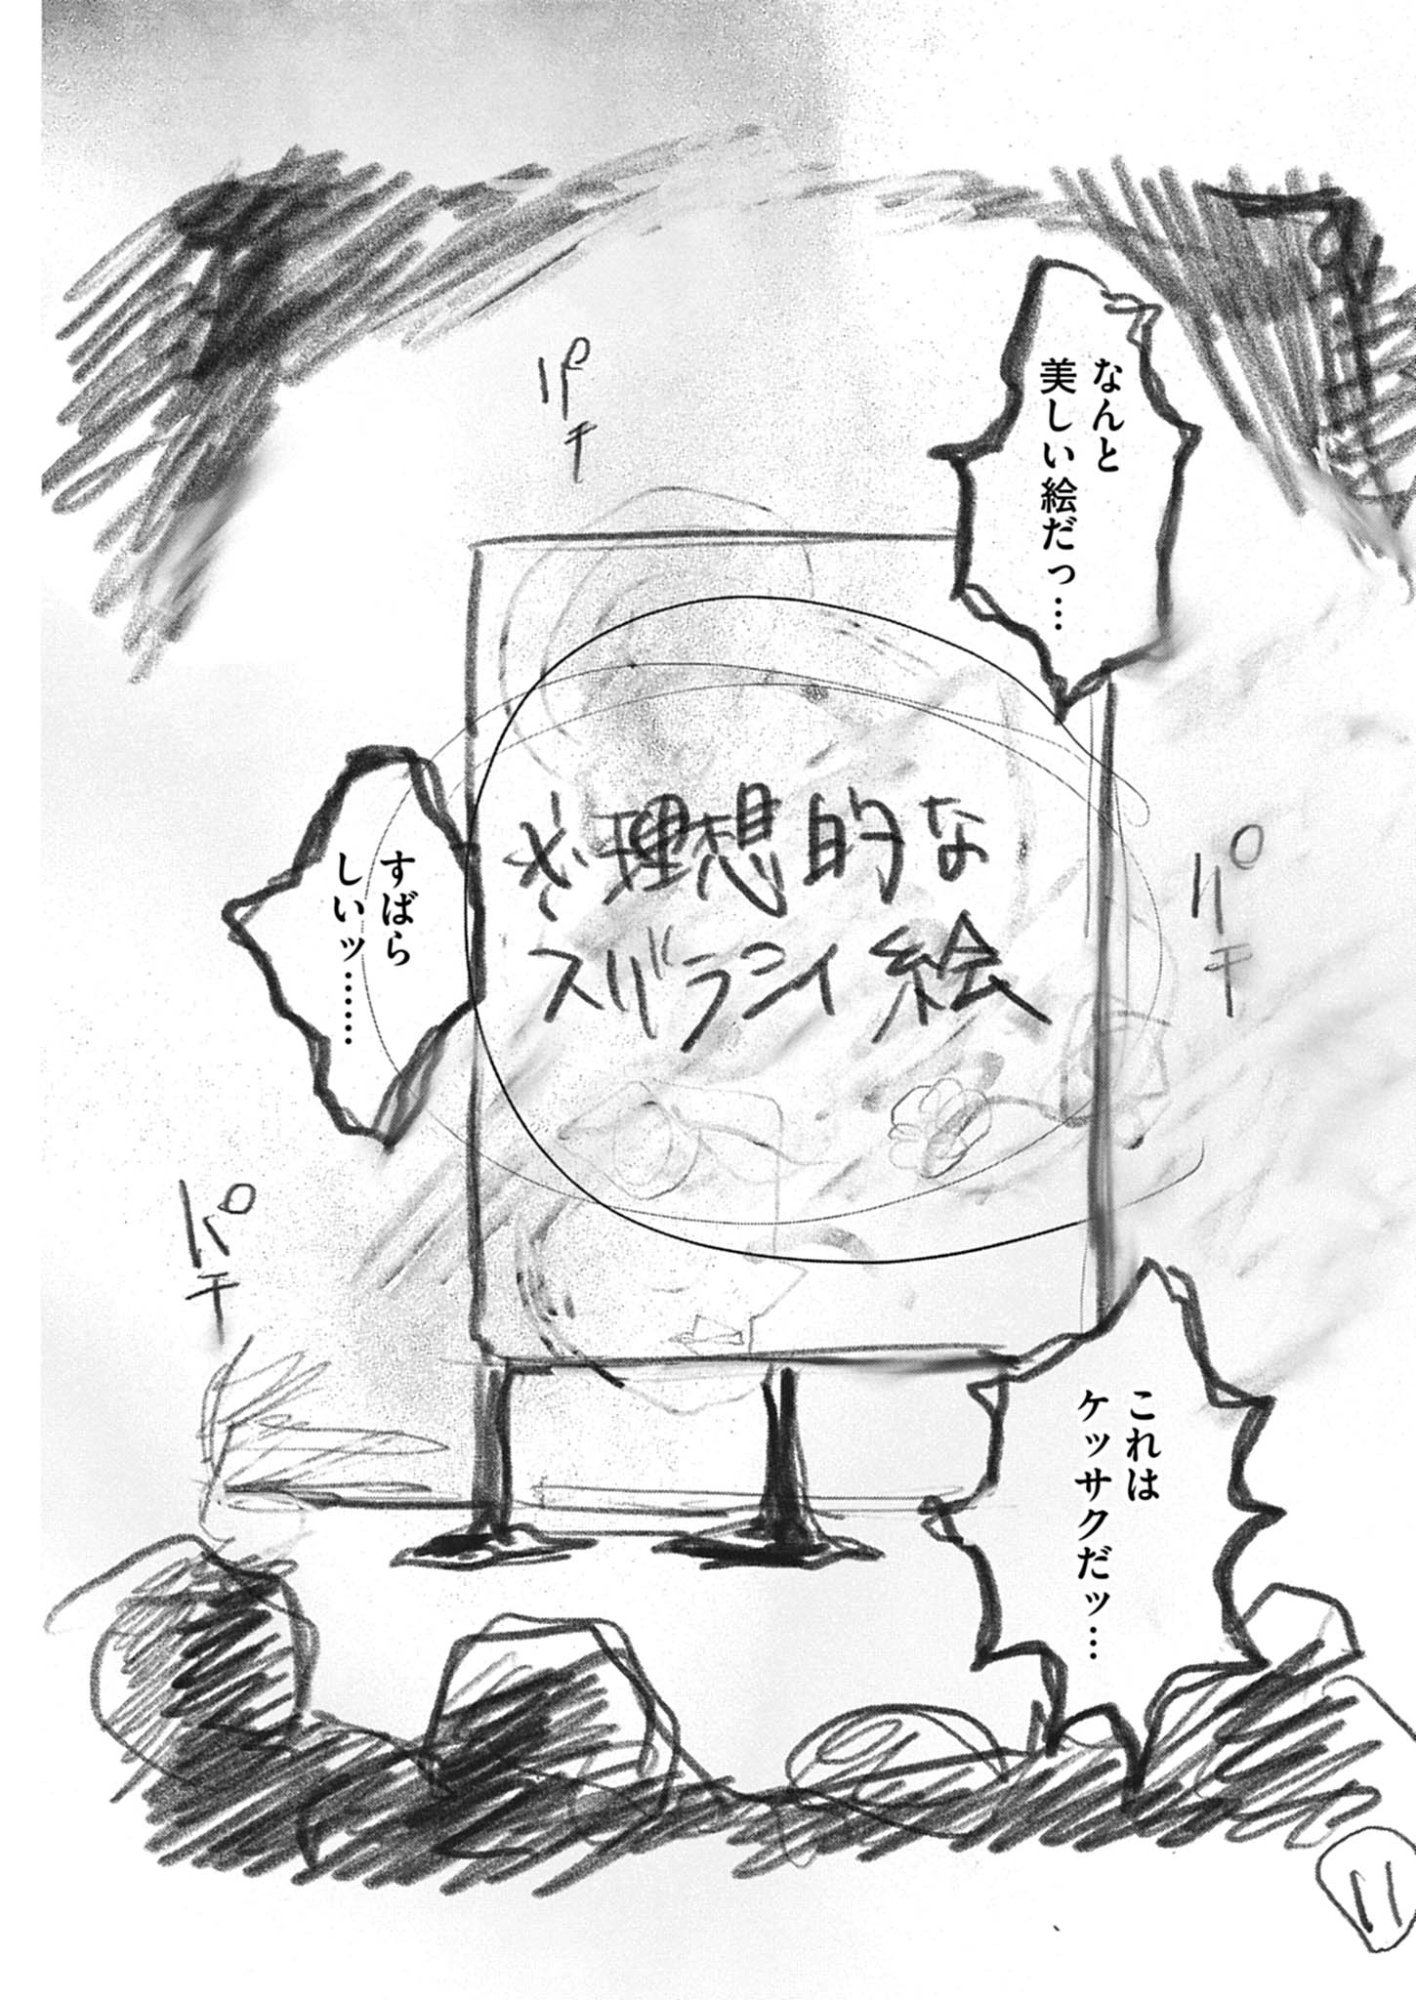 なんと
美しい絵だっ…
パチ
※理想的な
スバラシイ絵
すばら
しいッ……
パチ
パチ
これは
ケッサクだッ…
11